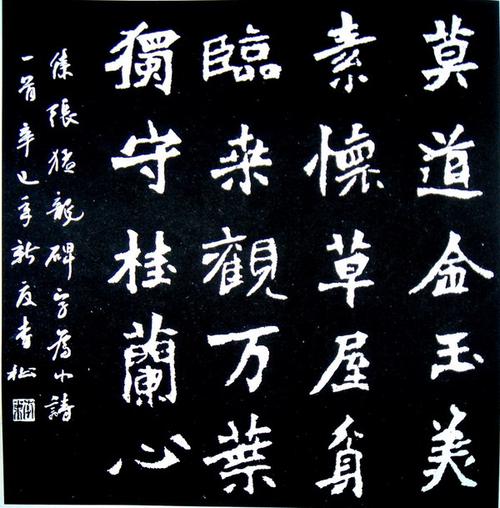 莫道金玉美
素懷草屋貧
臨桒觀万葉
獨守桂蘭心
集張猛龍碑字為小詩
一首辛巳年新夏青松